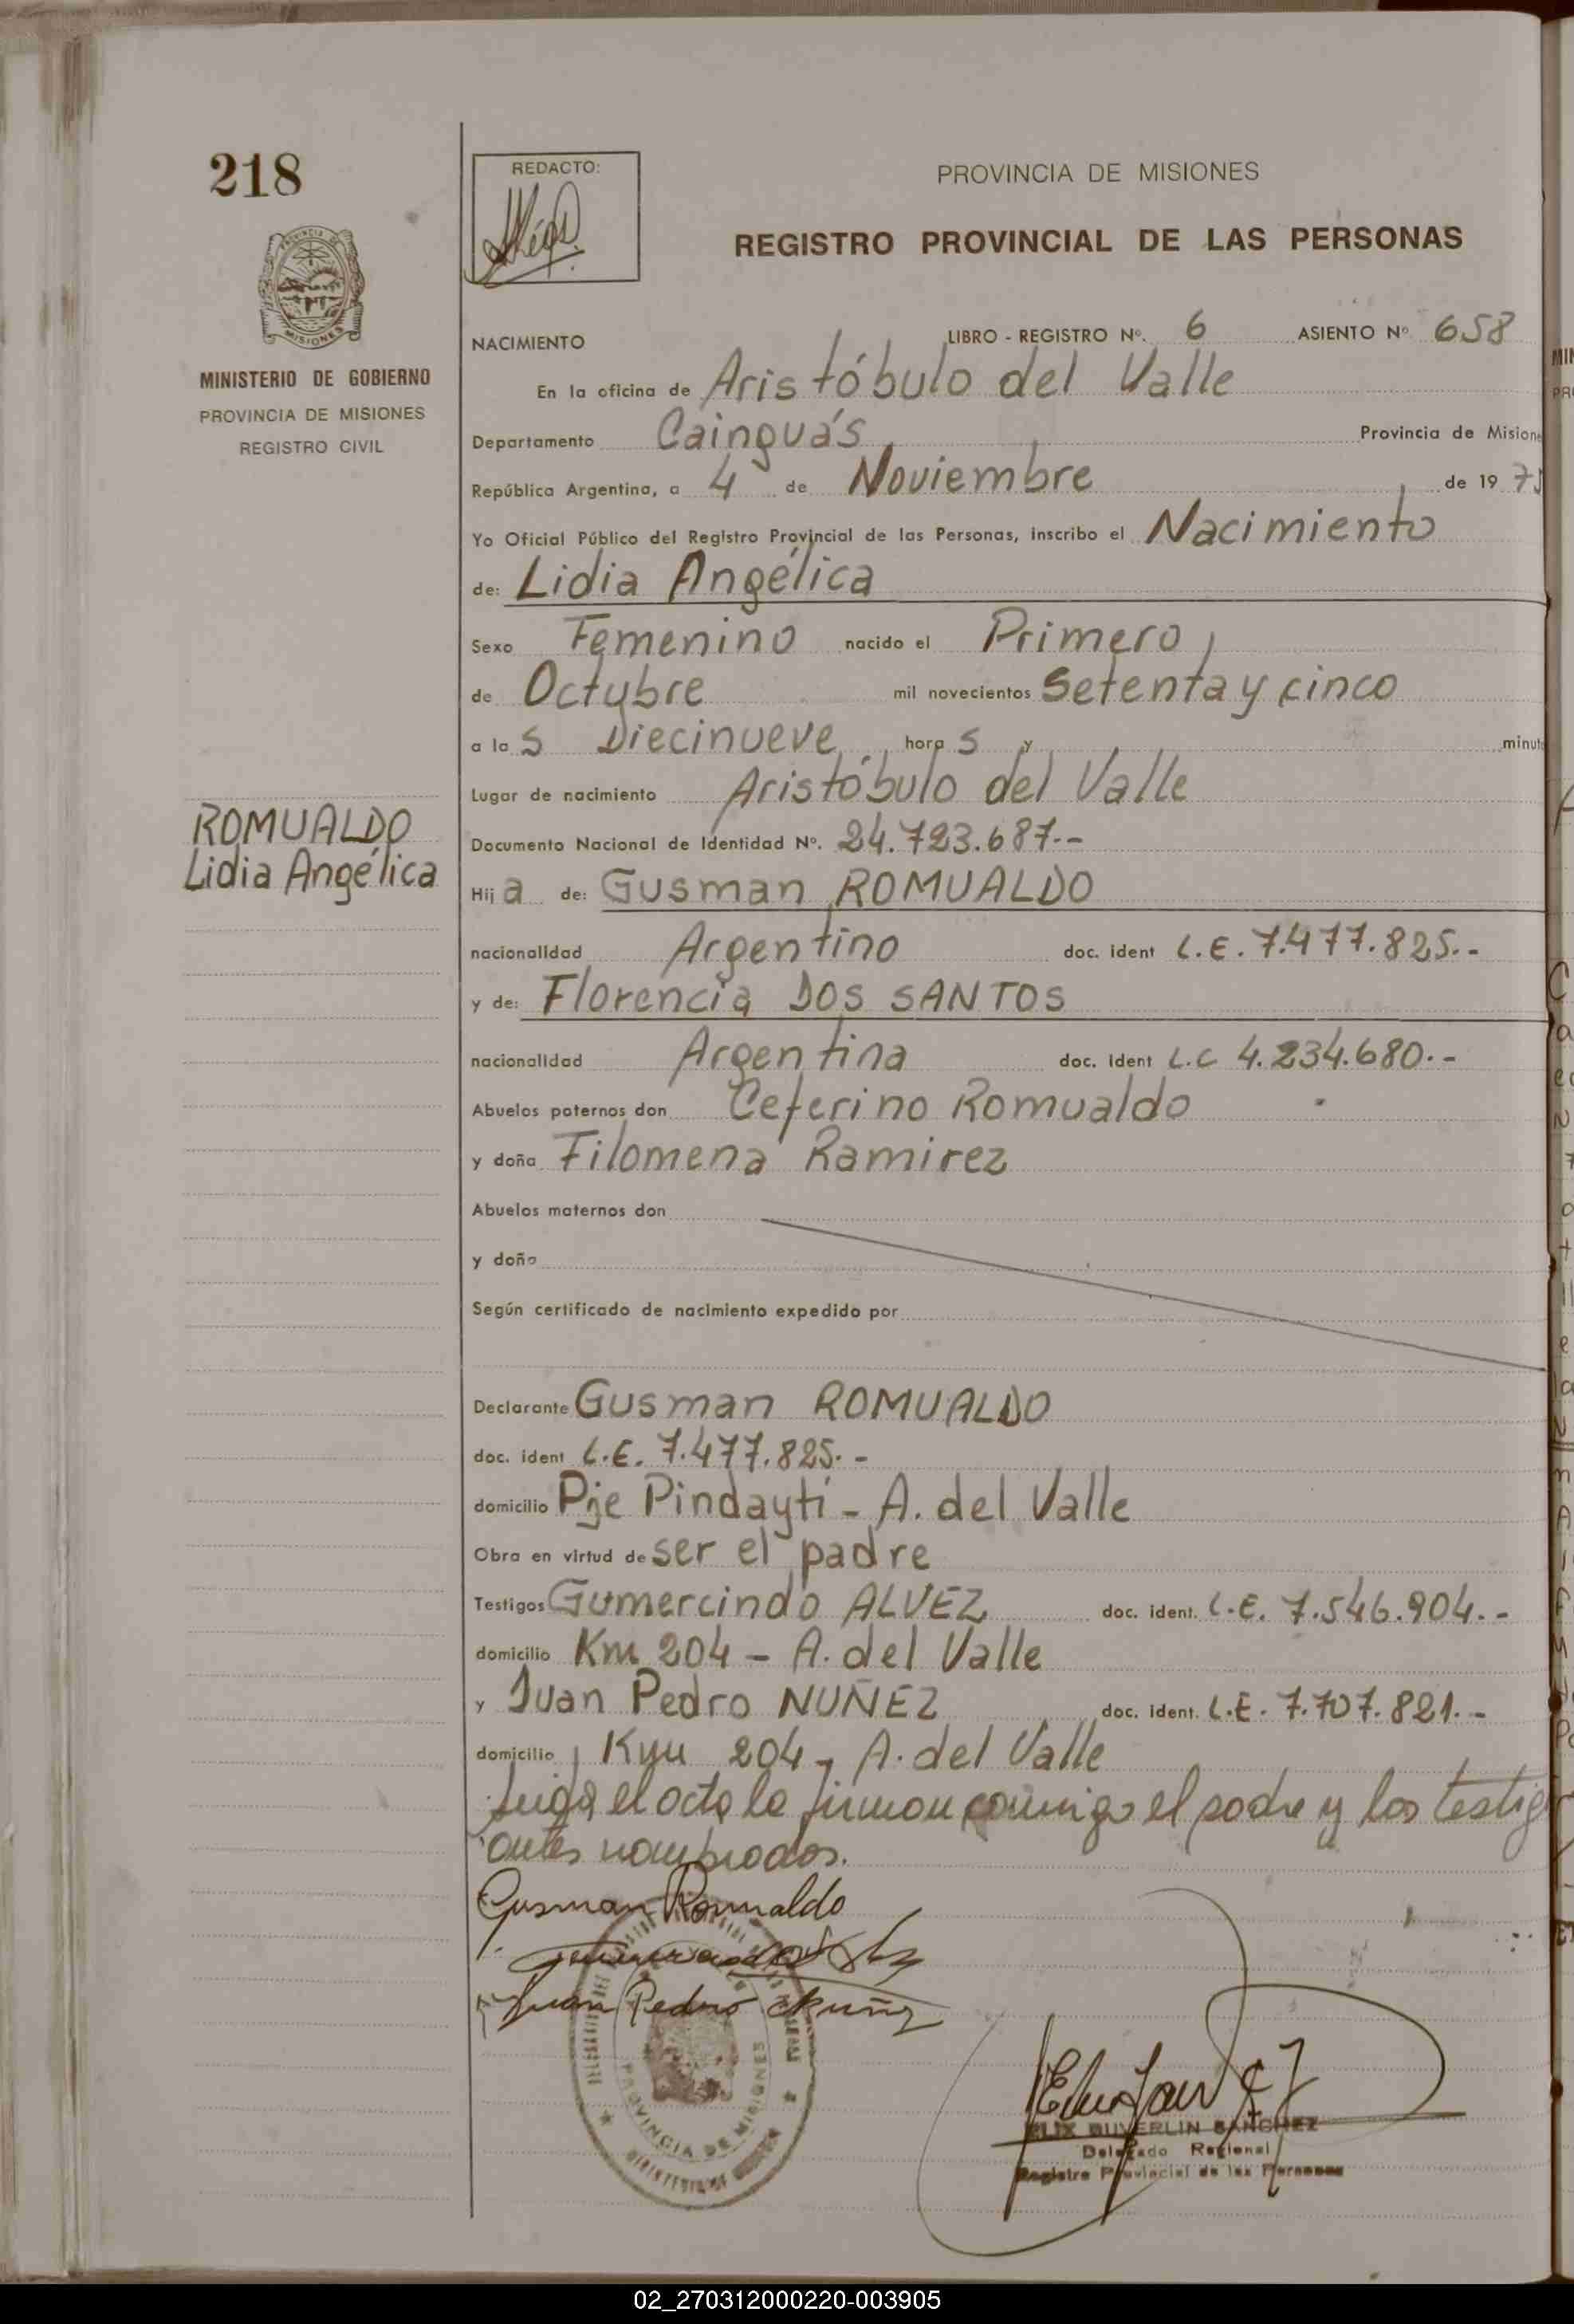 218
REDACTO:
PROVINCIA DE MISIONES
REGISTRO PROVINCIAL DE LAS PERSONAS
PROVINCIA DE
MISIONES
MINISTERIO DE GOBIERNO
PROVINCIA DE MISIONES
REGISTRO CIVIL
NACIMIENTO LIBRO - REGISTRO Nº. 6 ASIENTO Nº 658
En la oficina de Aristóbulo del Valle
Departamento Cainguás Provincia de Misione
República Argentina, a 4 de Noviembre de 19 75
Yo Oficial Público del Registro Provincial de las Personas, inscribo el Nacimiento
de: Lidia Angélica
Sexo Femenino nacido el Primero
de Octubre mil novecientos Setenta y cinco
a las Diecinueve horas y minut
Lugar de nacimiento Aristóbulo del Valle
ROMUALDO
Lidia Angélica
Documento Nacional de Identidad Nº. 24.723.687.-
Hija de: Gusman ROMUALDO
nacionalidad Argentino doc. ident L.E. 7.477.825.-
y de: Florencia DOS SANTOS
nacionalidad Argentina doc. ident L.C 4.234.680.-
Abuelos paternos don Ceferino Romualdo
y doña Filomena Ramirez
Abuelos maternos don
y doña
Según certificado de nacimiento expedido por
Declarante Gusman ROMUALDO
doc. ident L.E. 7.477.825.-
domicilio Pje Pindayti - A. del Valle
Obra en virtud de ser el padre
Testigos Gumercindo ALVEZ doc. ident. L.E. 7.546.904.-
domicilio Km 204 - A. del Valle
y Juan Pedro NUÑEZ doc. ident. L.E. 7.707.821.-
domicilio Km 204 - A. del Valle
el acta la firman conmigo el padre y los testig
antes nombrados.
Gusman Romualdo
Juan Pedro Nuñez
PROVINCIA DE MISIONES
ELIX DUVERLIN SANCHEZ
Delegado Regional
Registro Provincial de las Personas
02_270312000220-003905